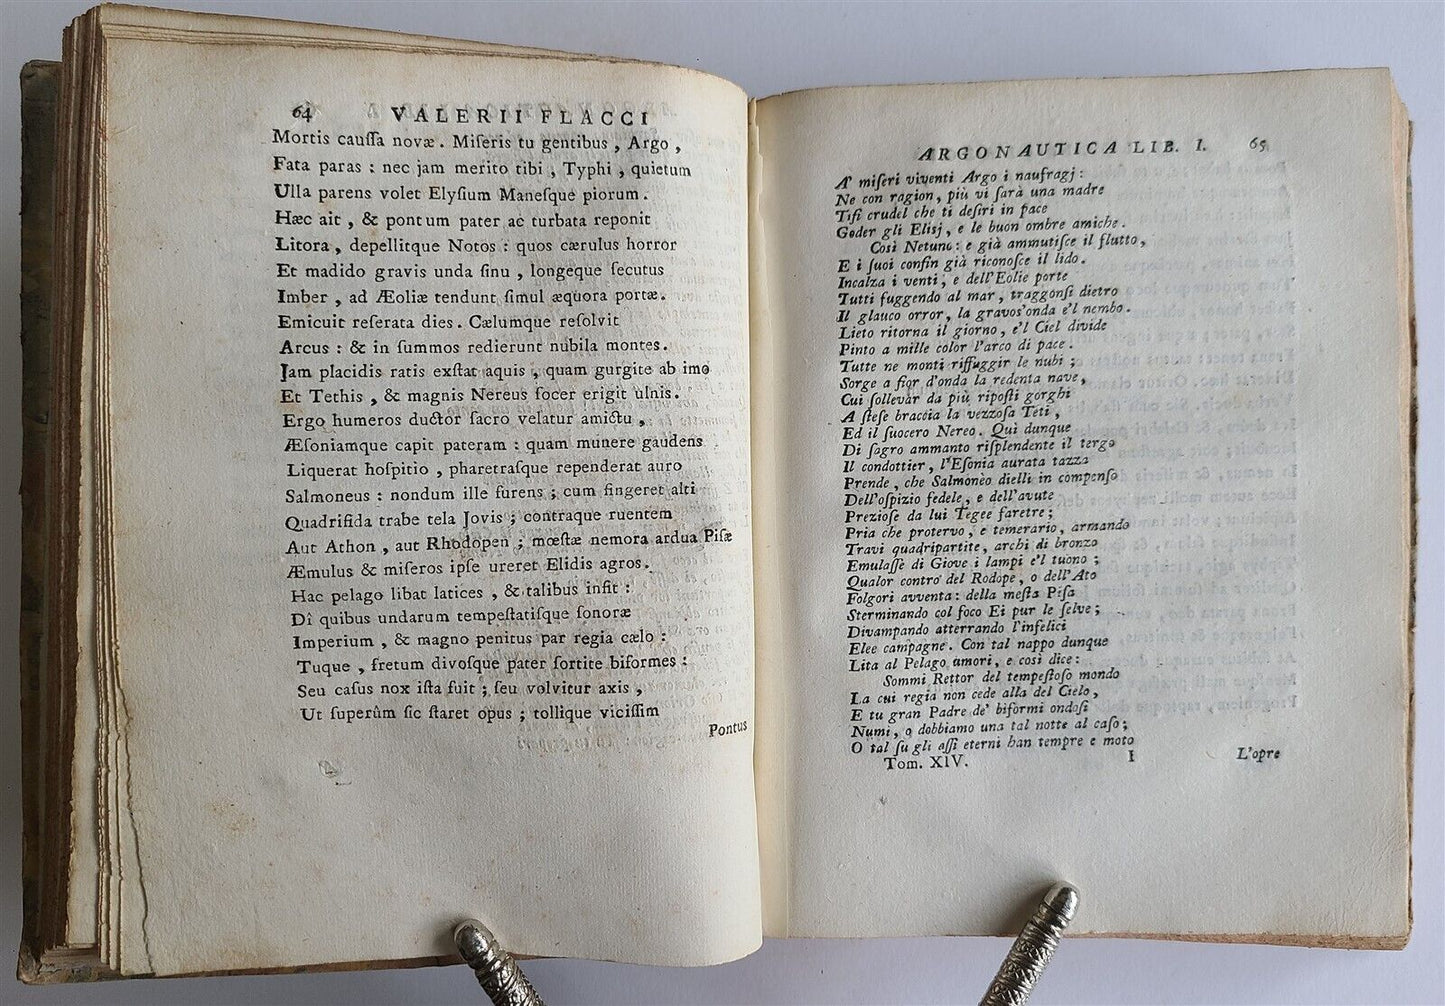 64 VALERII FLACCI
Mortis cauſſa novæ. Miſeris tu gentibus, Argo,
Fata paras: nec jam merito tibi, Typhi, quietum
Ulla parens volet Elyſium Maneſque piorum.
Hæc ait, & pontum pater ac turbata reponit
Litora, depellitque Notos: quos cærulus horror
Et madido gravis unda ſinu, longeque ſecutus
Imber, ad Æoliæ tendunt ſimul æquora portæ.
Emicuit reſerata dies. Cælumque reſolvit
Arcus: & in ſummos redierunt nubila montes.
Jam placidis ratis exſtat aquis, quam gurgite ab imo
Et Tethis, & magnis Nereus ſocer erigit ulnis.
Ergo humeros ductor ſacro velatur amictu,
Æſoniamque capit pateram: quam munere gaudens
Liquerat hoſpitio, pharetraſque rependerat auro
Salmoneus: nondum ille furens; cum fingeret alti
Quadrifida trabe tela Jovis; contraque ruentem
Aut Athon, aut Rhodopen; mœſtæ nemora ardua Piſæ
Æmulus & miſeros ipſe ureret Elidis agros.
Hac pelago libat latices, & talibus infit:
Dî quibus undarum tempeſtatiſque ſonoræ
Imperium, & magno penitus par regia cælo:
Tuque, fretum divoſque pater ſortite biformes:
Seu caſus nox iſta fuit; ſeu volvitur axis,
Ut ſuperûm ſic ſtaret opus; tollique viciſſim
Pontus
ARGONAUTICA LIB. I. 65
A' miſeri viventi Argo i naufragj:
Ne con ragion, più vi ſarà una madre
Tifi crudel che ti deſiri in pace
Goder gli Elisj, e le buon ombre amiche.
Così Netuno: e già ammutiſce il flutto,
E i ſuoi confin già riconoſce il lido.
Incalza i venti, e dell'Eolie porte
Tutti fuggendo al mar, traggonſi dietro
Il glauco orror, la gravos'onda e'l nembo.
Lieto ritorna il giorno, e'l Ciel divide
Pinto a mille color l'arco di pace.
Tutte ne monti riffuggir le nubi;
Sorge a fior d'onda la redenta nave,
Cui ſollevàr da più ripoſti gorghi
A ſteſe braccia la vezzoſa Teti,
Ed il ſuocero Nereo. Quì dunque
Di ſagro ammanto riſplendente il tergo
Il condottier, l'Eſonia aurata tazza
Prende, che Salmoneo dielli in compenſo
Dell'oſpizio fedele, e dell'avute
Prezioſe da lui Tegee faretre;
Pria che protervo, e temerario, armando
Travi quadripartite, archi di bronzo
Emulaſſe di Giove i lampi e'l tuono;
Qualor contro del Rodope, o dell'Ato
Folgori avventa: della meſta Piſa
Sterminando col foco Ei pur le ſelve;
Divampando atterrando l'infelici
Elee campagne. Con tal nappo dunque
Lita al Pelago amori, e così dice:
Sommi Rettor del tempeſtoſo mondo
La cui regia non cede alla del Cielo,
E tu gran Padre de' biformi ondoſi
Numi, o dobbiamo una tal notte al caſo;
O tal ſu gli aſſi eterni han tempre e moto
Tom. XIV. I L'opre